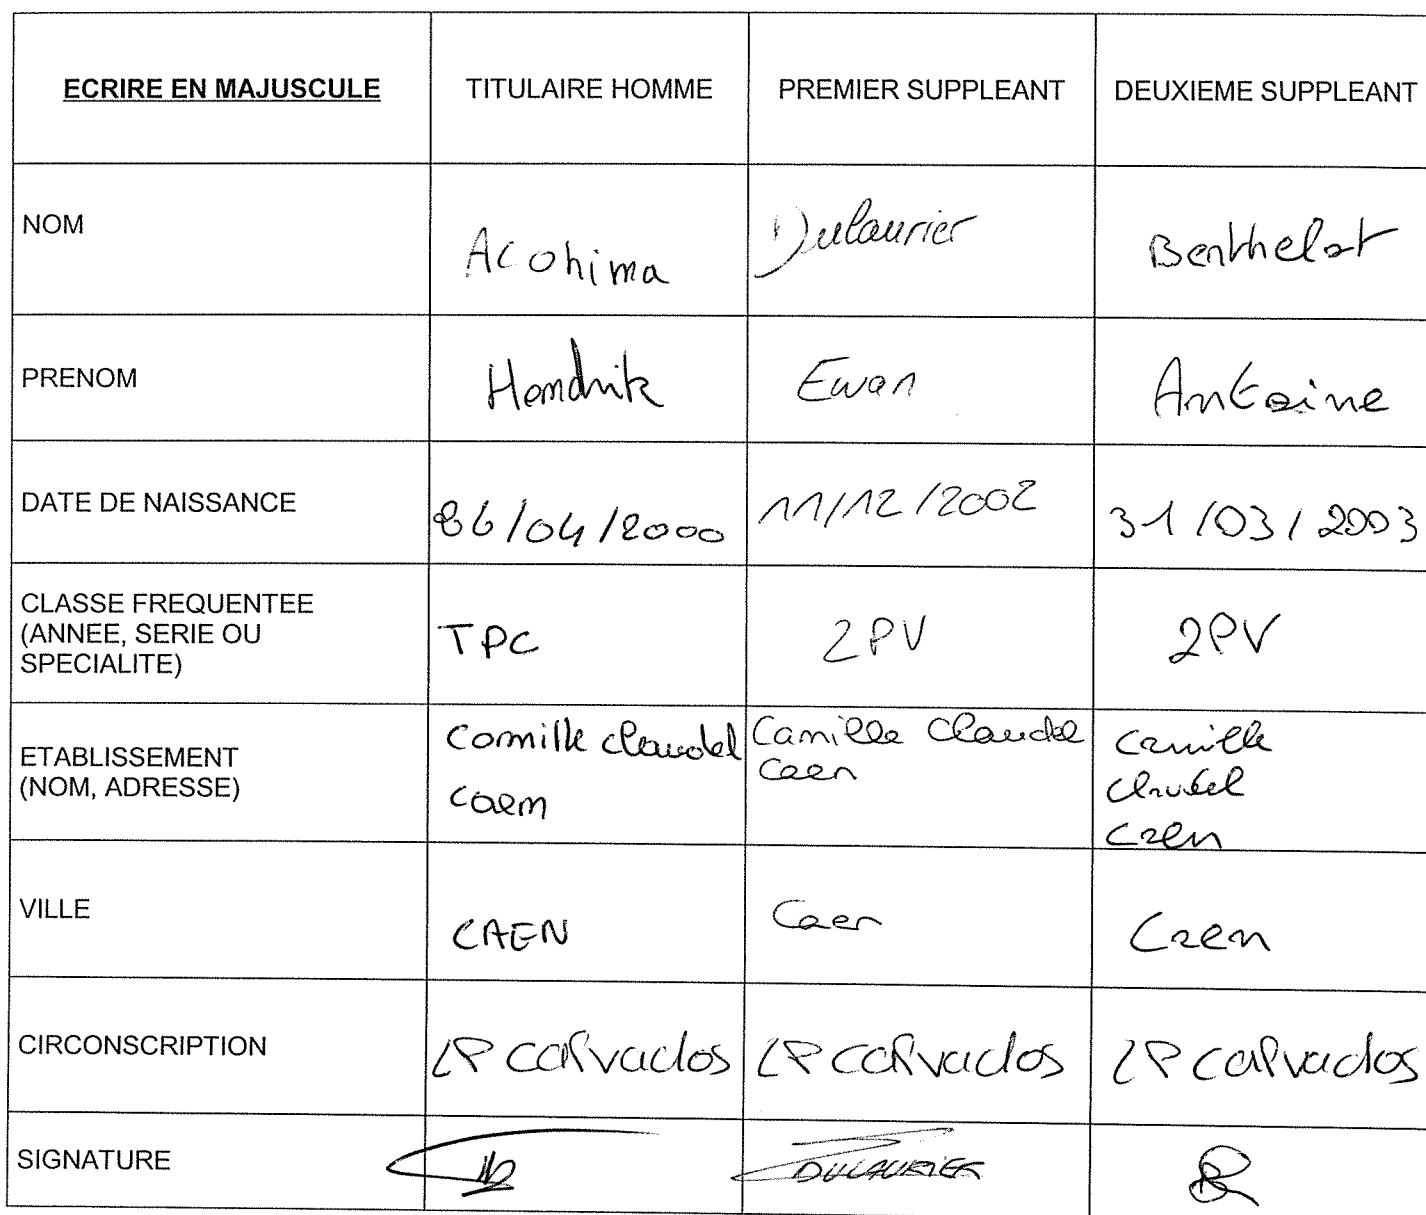 ECRIRE EN MAJUSCULE TITULAIRE HOMME PREMIER SUPPLEANT DEUXIEME SUPPLEANT
NOM Acohima Dulaurier Berthelot
PRENOM Hendrik Ewan Antoine
DATE DE NAISSANCE /04/2000 11/12/2002 31/03/2003
CLASSE FREQUENTEE
(ANNEE, SERIE OU
SPECIALITE)
TPC 2PV 2PV
ETABLISSEMENT
(NOM, ADRESSE)
Camille claudel
caen
Camille Claudel
Caen
Camille
Claudel
Caen
VILLE CAEN Caen Caen
CIRCONSCRIPTION LP calvados LP calvados LP calvados
SIGNATURE DULAURIER